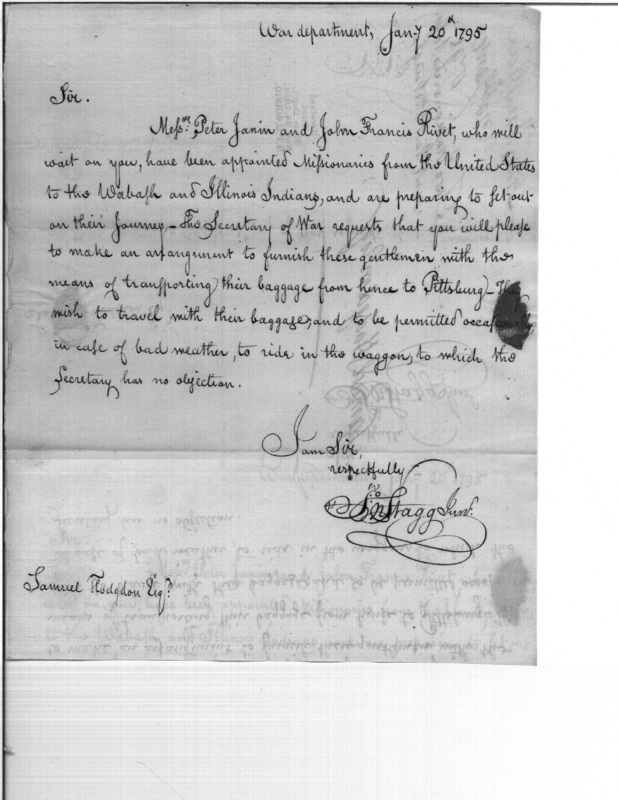 War department, Jany 20th 1795
Sir.
Messrs. Peter Janin and John Francis Rivet, who will
wait on you, have been appointed Missionaries from the United States
to the Wabash and Illinois Indians, and are preparing to set out
on their Journey – The Secretary of War requests that you will please
to make an arrangment to furnish these gentlemen with the
means of transporting their baggage from hence to Pittsburg –
wish to travel with their baggage, and to be permitted
in case of bad weather, to ride in the waggon, to which the
Secretary has no objection.
I am Sir,
respectfully
Jno Stagg Junr.
Samuel Hodgdon Esqr.